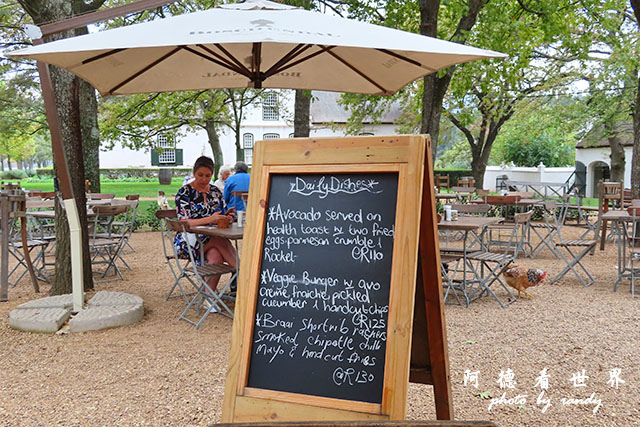 Daily Dishes
* Avocado served on
health toast w two fried
eggs parmesan crumble &
Rocket @R110
* Veggie Burger w guo
creme fraiche pickled
cucumber & handcut chips
@R125
* Braai Shortrib rashers
Smoked chipotle chilli
Mayo & handcut fries
@R130
阿德看世界
photo by randy